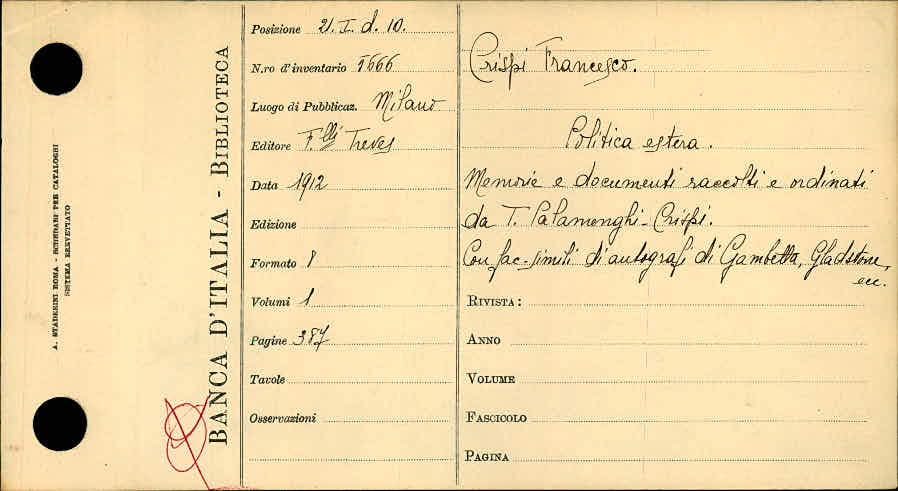 A. STADERINI ROMA - SCHEDARI PER CATALOGHI
SISTEMA BREVETTATO
BANCA D'ITALIA - BIBLIOTECA
Posizione 21. I. d. 10.
N.ro d'inventario 1666
Luogo di Pubblicaz. Milano
Editore F.lli Treves
Data 1912
Edizione
Formato 8
Volumi 1
Pagine 387
Tavole
Osservazioni
Crispi Francesco.
Politica estera.
Memorie e documenti raccolti e ordinati
da T. Palamenghi-Crispi.
Con fac-simili di autografi di Gambetta, Gladstone,
ecc.
RIVISTA:
ANNO
VOLUME
FASCICOLO
PAGINA